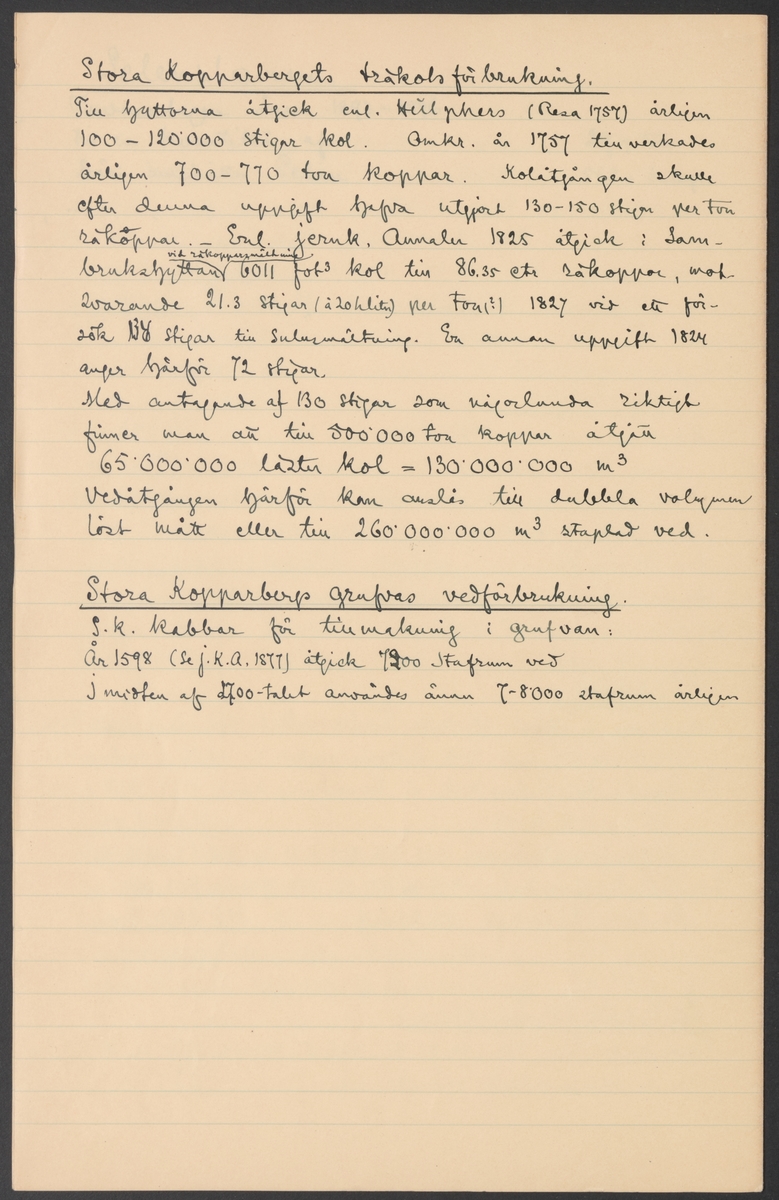 Stora Kopparbergets träkolsförbrukning.
Till hyttorna åtgick enl. Hülphers (Resa 1757) årligen
100 – 120'000 stigar kol. Omkr. år 1757 tillverkades
årligen 700 – 770 ton koppar. Kolåtgången skulle
efter denna uppgift hafva utgjort 130-150 stigar per ton
råkoppar. – Enl. Jernk. Annaler 1825 åtgick i Sam-
vid råkopparsmältning
brukshyttan 6011 fot³ kol till 86.35 ctr råkoppar, mot-
svarande 21.3 stigar (à 20 hliter) per ton (?) 1827 vid ett för-
sök stigar till sulusmältning. En annan uppgift 1824
anger härför 72 stigar.
Med antagande af 130 stigar som någorlunda riktigt
finner man att till 500'000 ton koppar åtgått
65'000'000 läster kol = 130'000'000 m³
Vedåtgången härför kan anslås till dubbla volymen
löst mått eller till 260'000'000 m³ staplad ved.
Stora Kopparbergs grufvas vedförbrukning.
S.k. kabbar för tillmakning i grufvan:
År 1598 (Se J.K.A. 1877) åtgick 7200 stafrum ved
I midten af 1700-talet användes ännu 7-8'000 stafrum årligen